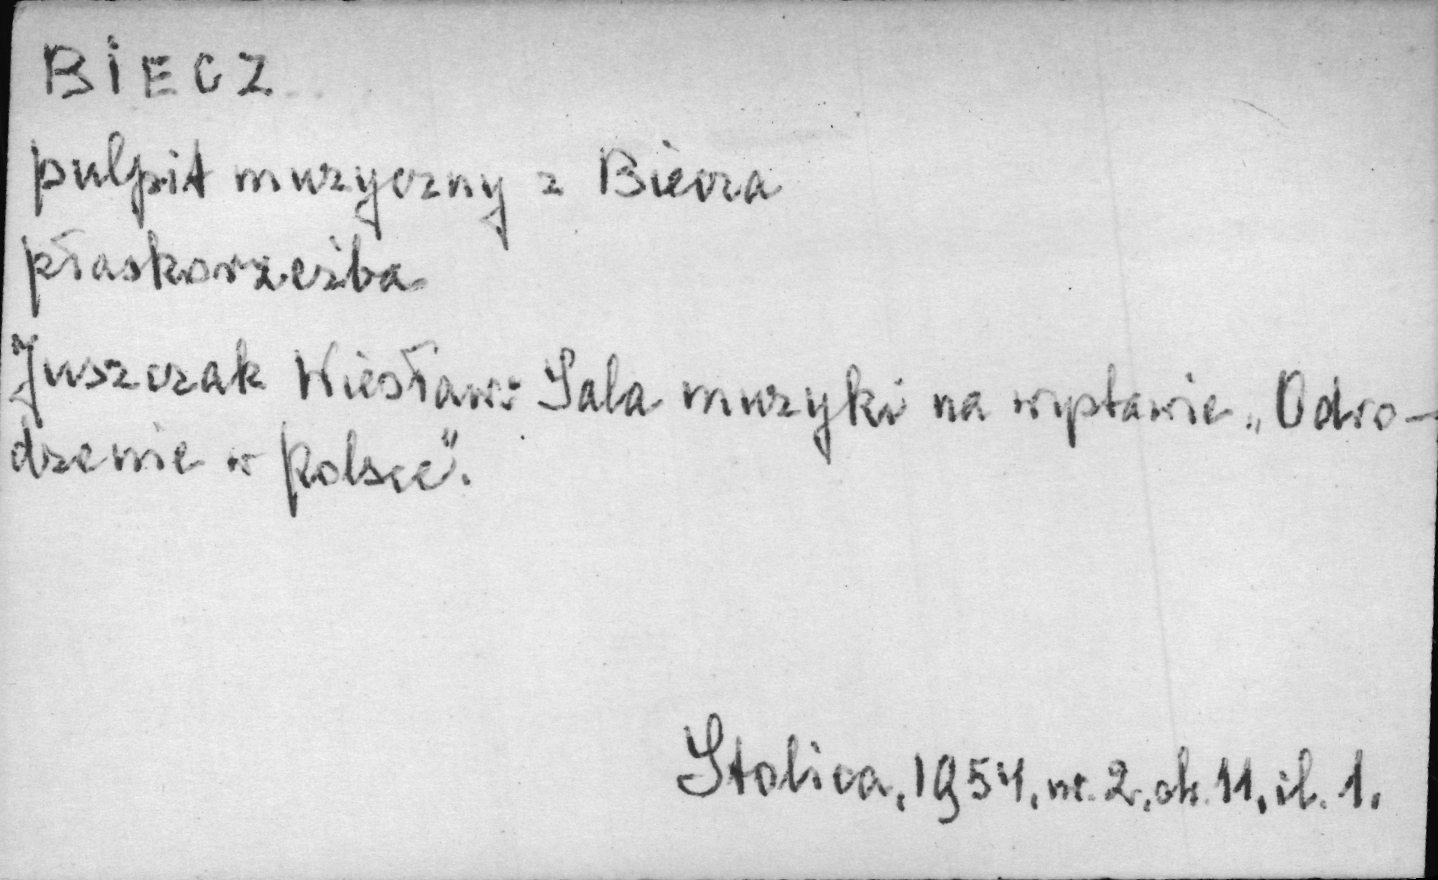 BIECZ
pulpit muzyczny z Biecza
płaskorzeźba
Juszczak Wiesław: Sala muzyki na wystawie „Odro-
dzenie w Polsce".
Stolica, 1954, nr. 2, ok. 11, il. 1.